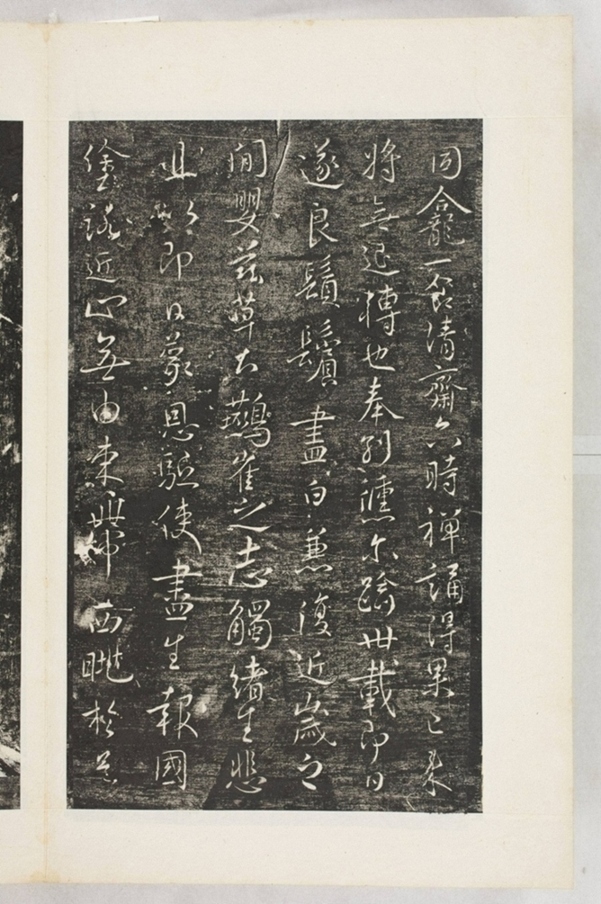 同龕一食清齋六時禪誦得果已來
將無退轉也奉別倏尒踰卅載即日
遂良鬚鬢盡白兼復近歲之
間嬰茲草土鷰雀之志觸緒生悲
且以即日蒙恩驅使盡生報國
塗路近止無由束帶西眺於邑